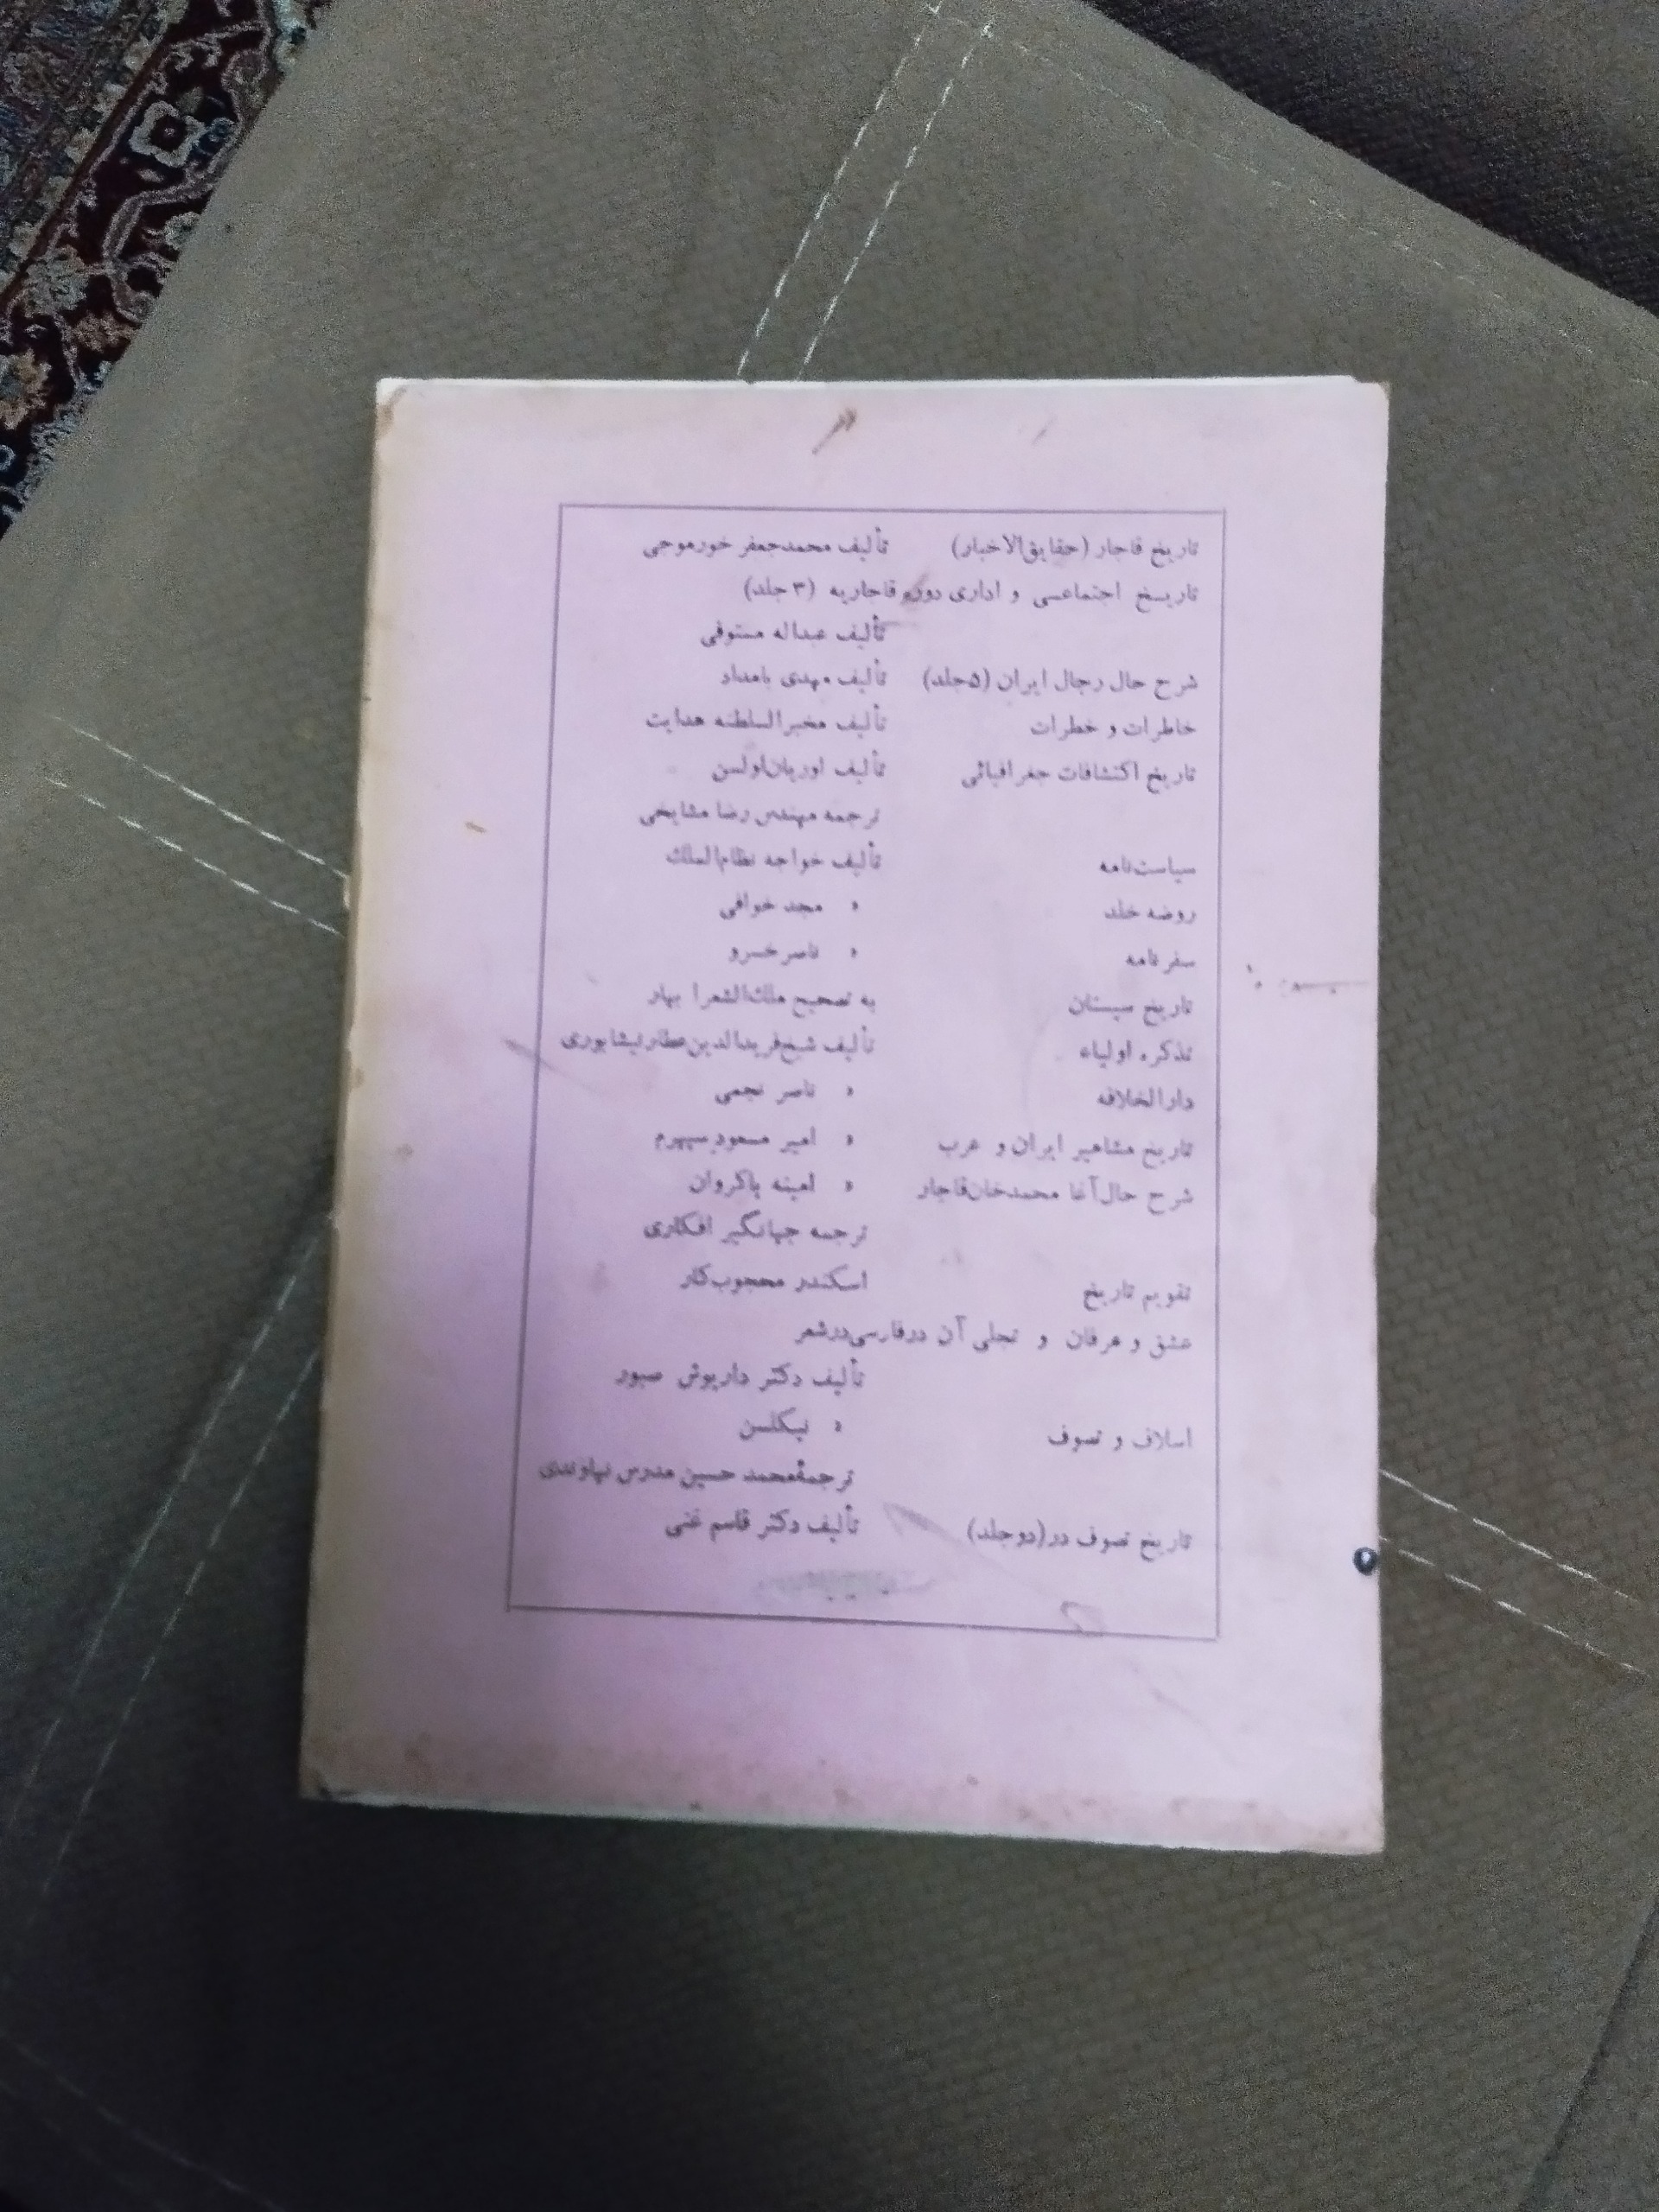 تاریخ قاجار (حقایق‌الاخبار) تألیف محمدجعفر خورموجی
تاریخ اجتماعی و اداری دوره قاجاریه (۳ جلد)
تألیف عبداله مستوفی
شرح حال رجال ایران (۵جلد) تألیف مهدی بامداد
خاطرات و خطرات تألیف مخبرالسلطنه هدایت
تاریخ اکتشافات جغرافیائی تألیف اوریان‌اولسن
ترجمه مهندس رضا مشایخی
سیاست‌نامه تألیف خواجه نظام‌الملک
روضه خلد » مجد خوافی
سفرنامه » ناصرخسرو
تاریخ سیستان به تصحیح ملک‌الشعرا بهار
تذکره اولیاء تألیف شیخ‌فریدالدین‌عطارنیشابوری
دارالخلافه » ناصر نجمی
تاریخ مشاهیر ایران و عرب » امیر مسعودسپهرم
شرح حال‌آغا محمدخان‌قاجار » امینه پاکروان
ترجمه جهانگیر افکاری
تقویم تاریخ اسکندر محجوب‌کار
عشق و عرفان و تجلی آن درفارسی‌درشعر
تألیف دکتر داریوش صبور
اسلاف و تصوف » نیکلسن
ترجمهٔمحمد حسین مدرس نهاوندی
تاریخ تصوف در(دوجلد) تألیف دکتر قاسم غنی